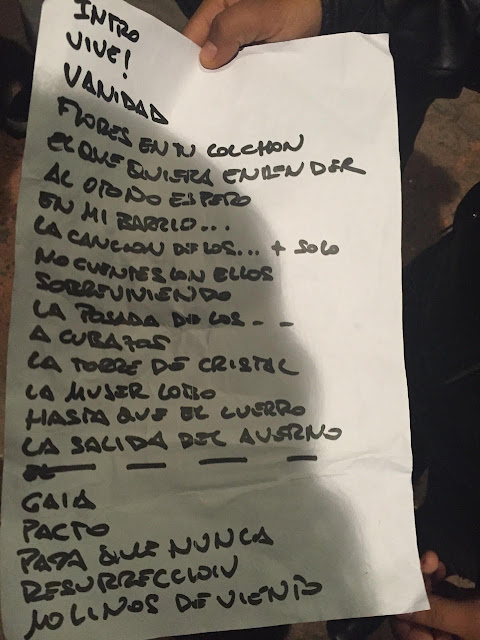 INTRO
VIVE!
VANIDAD
FLORES EN TU COLCHON
EL QUE QUIERA ENTENDER
AL OTOÑO ESPERO
EN MI BARRIO...
LA CANCION DE LOS... + SOLO
NO CUENTES CON ELLOS
SOBREVIVIENDO
LA POSADA DE LOS - -
A CUBAZOS
LA TORRE DE CRISTAL
LA MUJER LOBO
HASTA QUE EL CUERPO
LA SALIDA DEL AVERNO
GAIA
PACTO
PARA QUE NUNCA
RESURRECCION
MOLINOS DE VIENTO